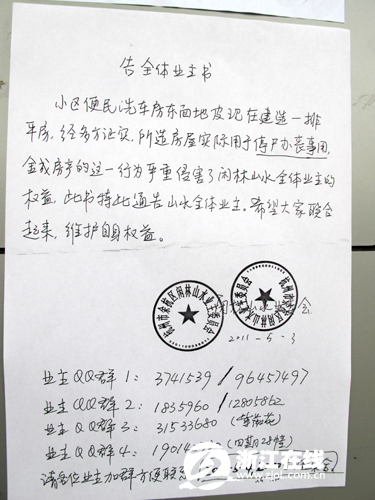 告全体业主书
小区便民洗车房东面地皮现在建造一排
平房，经多方证实，所造房屋实际用于停尸办丧事用，
金成房产的这一行为严重侵害了闲林山水全体业主的
权益，此书特此通告山水全体业主。希望大家联合
起来，维护自身权益。
杭州市余杭区闲林山水业主委员会
2011-5-3
业主QQ群1：3741539/96457497
业主QQ群2：1835960/12805862
业主QQ群3：31533680
业主QQ群4：19014
请各位业主加群方便联
浙江在线
www.zjol.com.cn